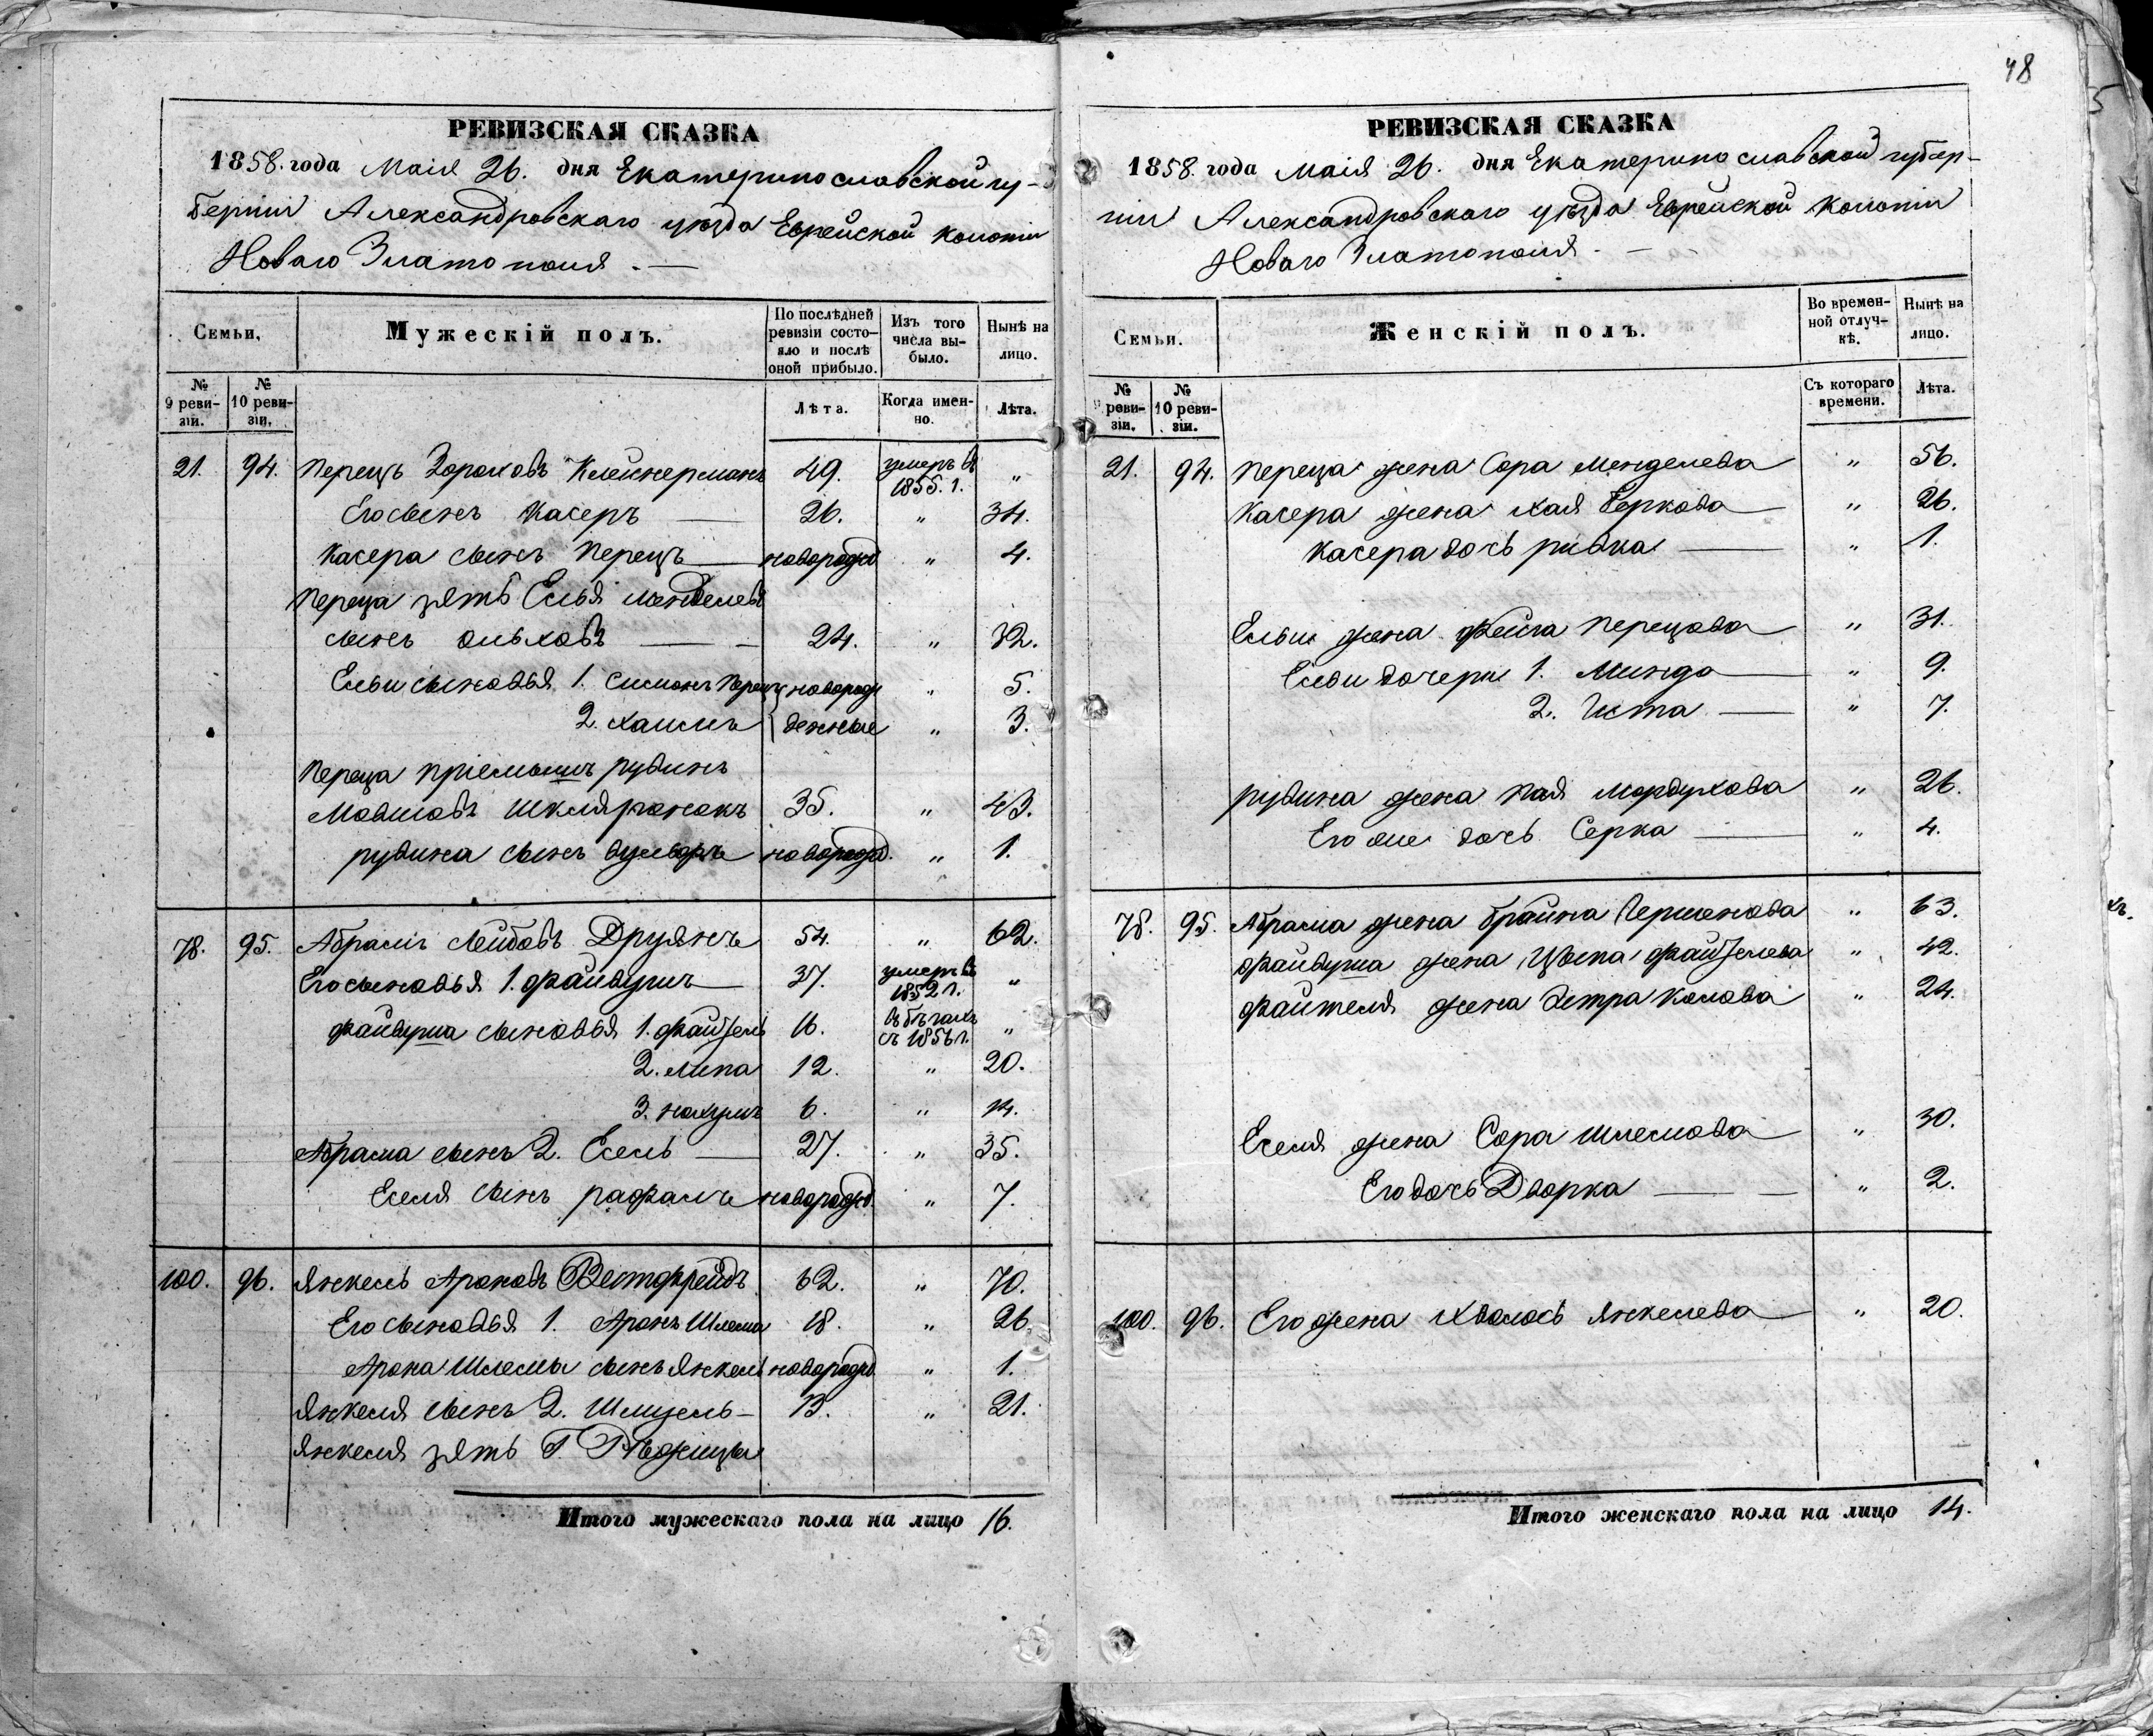 48
РЕВИЗСКАЯ СКАЗКА
1858. года Маія 26. дня Екатеринославской гу-
берніи Александровскаго уѣзда Еврейской колоніи
Новаго Златополя. —
Семьи.
Мужескій полъ.
По послѣдней ревизіи состояло и послѣ оной прибыло.
Изъ того числа выбыло.
Нынѣ на лицо.
№ 9 реви-зіи.
№ 10 реви-зіи.
Лѣта.
Когда имен-но.
Лѣта.
21. 94. Перецъ Зораховъ Клейнерманъ 49. умеръ въ 1855. г. "
Его сынъ Касеръ — 26. " 34.
Касера сынъ Перецъ — новорожд " 4.
Переца зять Есья Менделевъ
сынъ Ольховъ — 24. " 32.
Есьи сыновья 1. Симонъ Перецъ новорож " 5.
2. Хаимъ денные " 3.
Переца пріемышъ Рувинъ
Мовшовъ Шкляронокъ 35. " 43.
Рувина сынъ новорожд. " 1.
78. 95. Абрамъ Лейбовъ Друянъ 54. " 62.
Его сыновья 1. Файвушъ 37. умеръ въ 1852 г. "
Файвуша сыновья 1. Файтель 16. въ бѣгахъ съ 1856 г. "
2. Липа 12. " 20.
3. Нахумъ 6. " 14.
Абрама сынъ 2. Есель — 27. " 35.
Еселя сынъ Рафаль новорожд. " 7.
100. 96. Янкель Ароновъ Вестфрейдъ 62. " 70.
Его сыновья 1. Аронъ Шлема 18. " 26
Арона Шлемы сынъ Янкель новорожд " 1.
Янкеля сынъ 2. Шмуель — 13. " 21.
Янкеля зять Г.
Итого мужескаго пола на лицо 16.
РЕВИЗСКАЯ СКАЗКА
1858. года Маія 26. дня Екатеринославской губер-
ніи Александровскаго уѣзда Еврейской колоніи
Новаго Златополя. —
Семьи.
Женскій полъ.
Во времен-ной отлуч-кѣ.
Нынѣ на лицо.
№ 9 реви-зіи.
№ 10 реви-зіи.
Съ котораго времени.
Лѣта.
21. 94. Переца жена Сора Менделева " 56.
Касера жена Хая Беркова " 26.
Касера дочь Ривка — " 1.
Есьи жена Фейга Перецова " 31.
Есьи дочери 1. Минда — " 9.
2. Иста — " 7.
Рувина жена Пая Мордухова " 26.
Его же дочь Серка — " 4.
78. 95. Абрама жена Брайна Гершенова " 63.
Файвуша жена Цыпа Файтелева " 42.
Файтеля жена Эстра " 24.
Еселя жена Сора Шлемова " 30.
Его дочь Дворка — " 2.
100. 96. Его жена Хволось Янкелева " 20.
Итого женскаго пола на лицо 14.